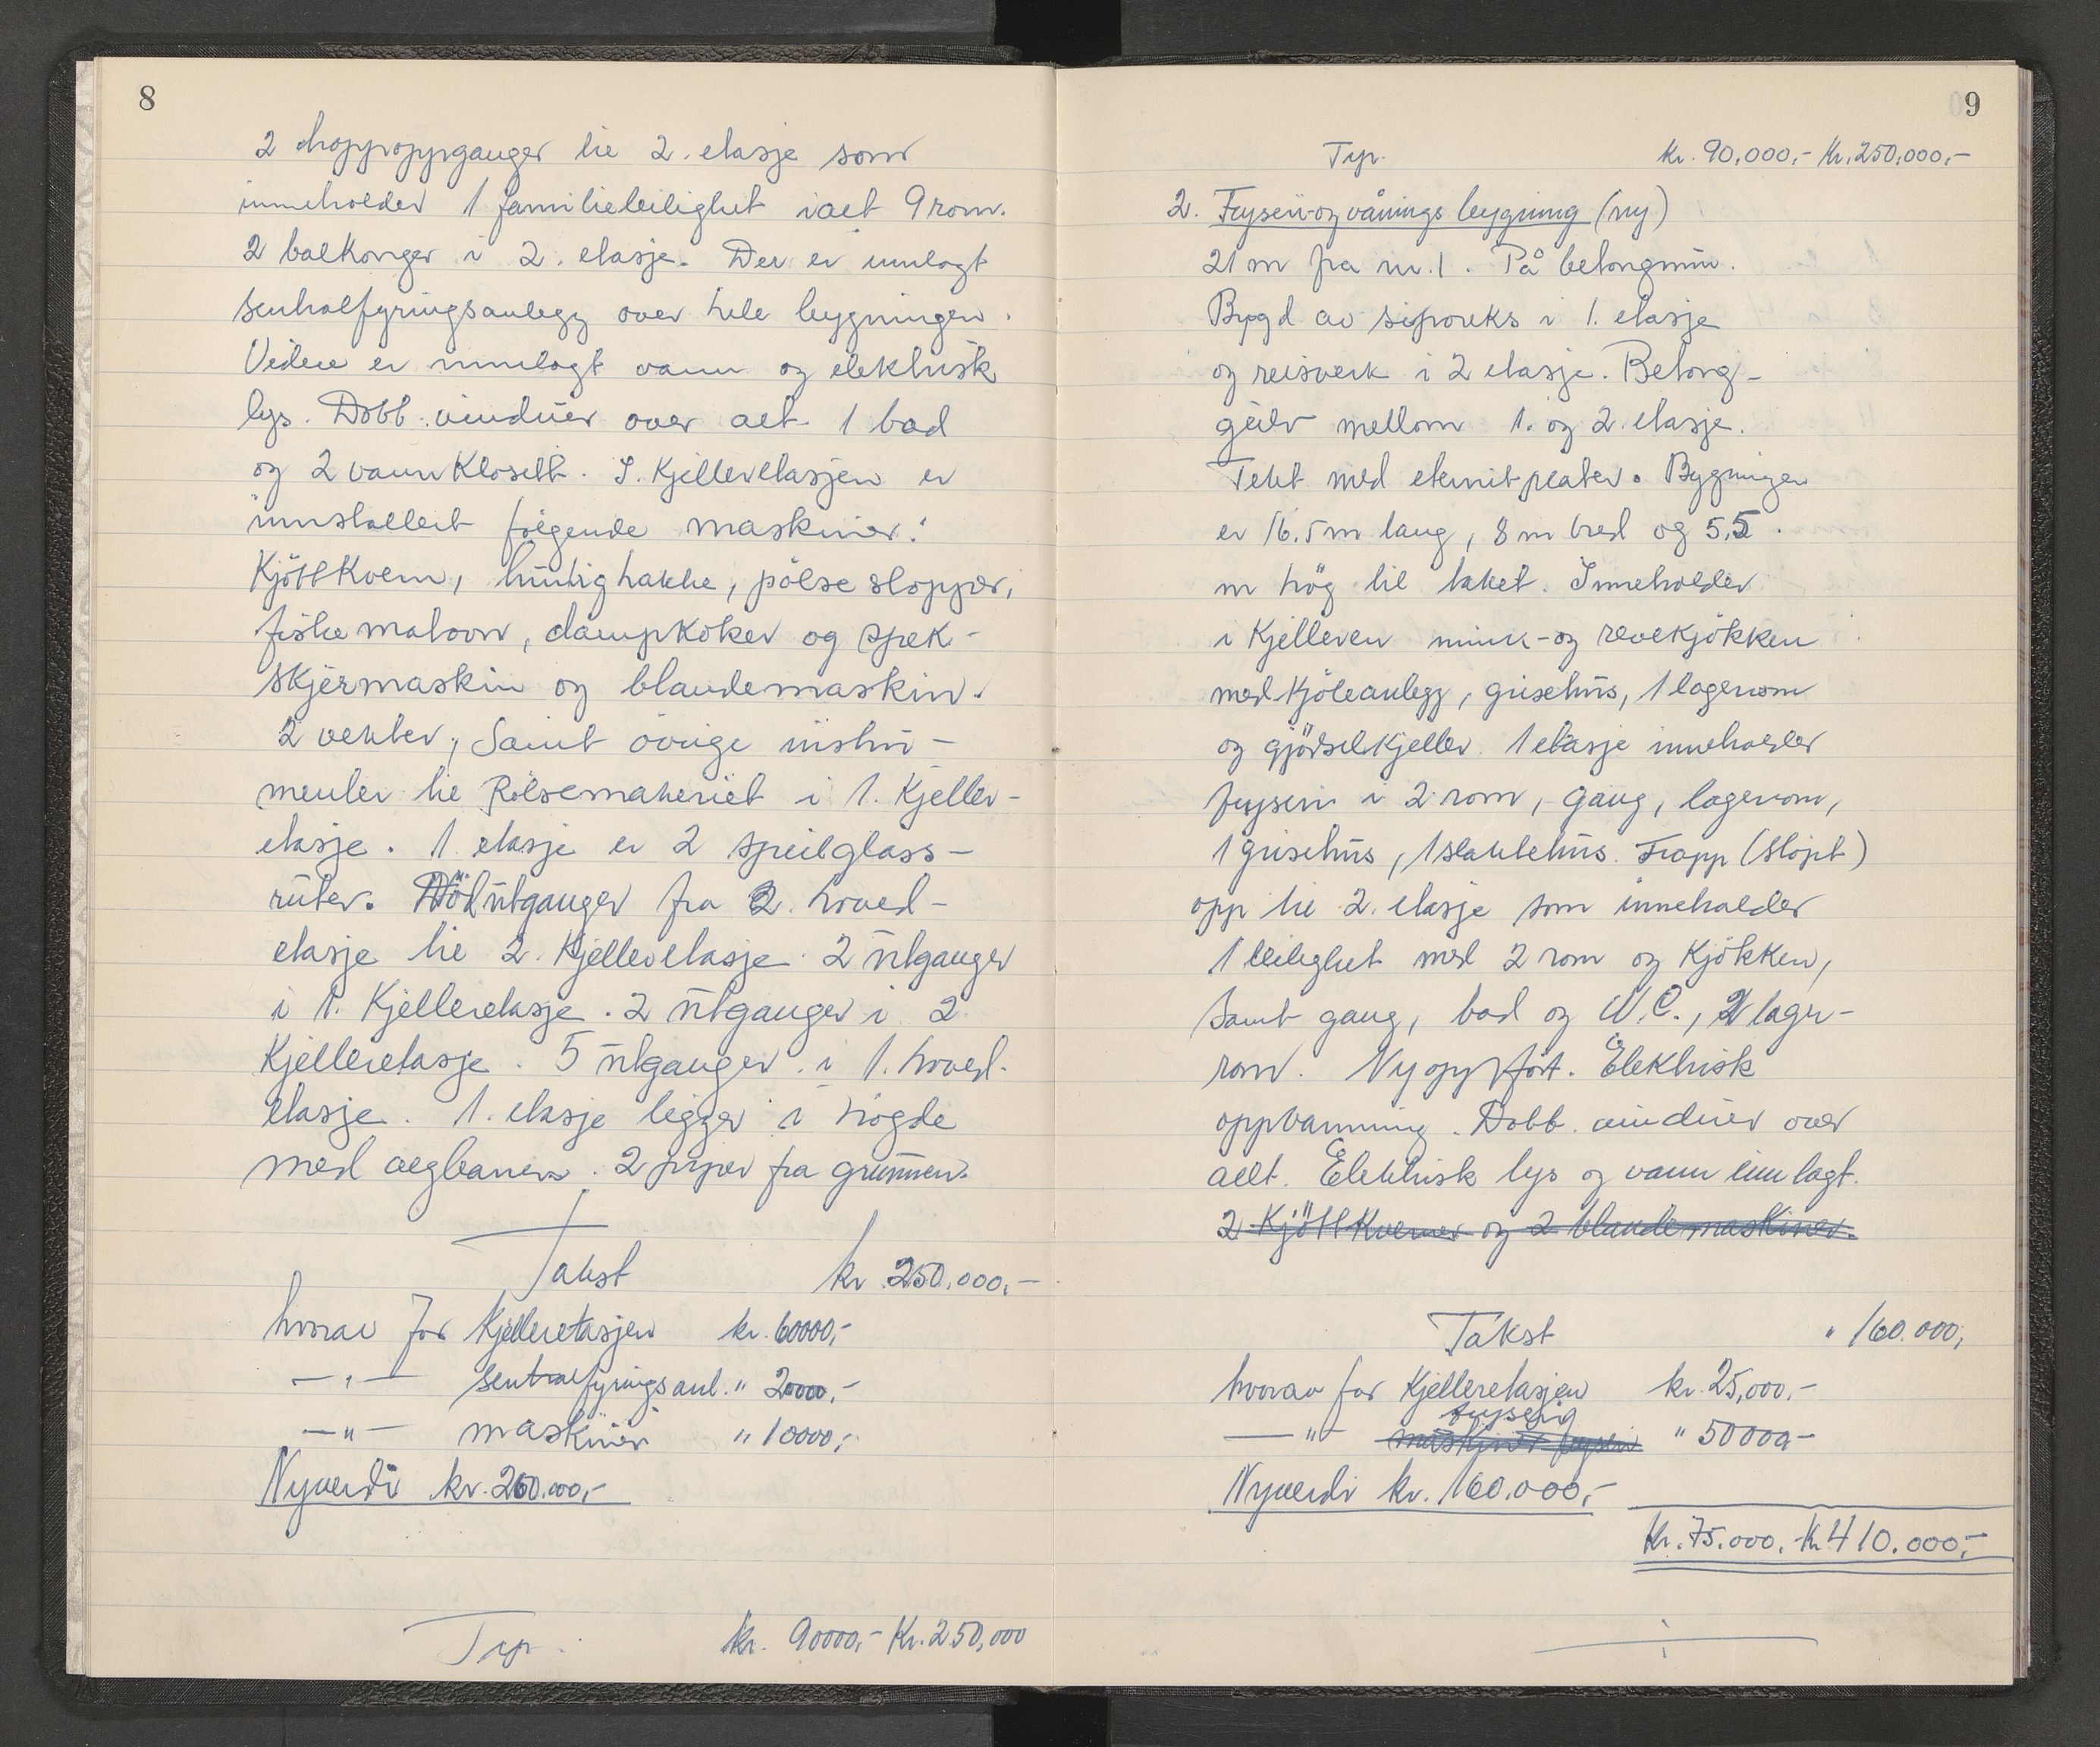 8
2 trappoppganger til 2. etasje som
inneholder 1 familieleilighet ialt 9 rom.
2 balkonger i 2. etasje. Der er innlagt
sentralfyringsanlegg over hele bygningen.
Videre er innlagt vann og elektrisk
lys. Dobb. vinduer over alt. 1 bad
og 2 vannklosett. I. Kjelleretasjen er
innstallert følgende maskiner:
Kjöttkvern, hurtighakke, pölsestopper,
fiskematovn, dampkoker og spek-
skjermaskin og blandemaskin.
2 vekter, Samt övrige instru-
menter til Pölsemakeriet i 1. Kjeller-
etasje. 1 etasje er 2 speilglass-
ruter. utganger fra 2. hoved-
etasje til 2. Kjelleretasje. 2 utganger
i 1. Kjelleretasje. 2 utganger i 2
Kjelleretasje. 5 utganger i 1. hoved-
etasje. 1. etasje ligger i högde
med 2 piper fra grunnen.
Takst kr. 250.000,-
hvorav for Kjelleretasjen kr. 60000,-
— " — sentralfyringsanl. " 20000,-
— " — maskiner " 10000,-
Nyverdi kr. 260.000,-
Trp. kr. 90000,- Kr. 250,000
9
Trp. kr. 90,000,- Kr. 250,000,-
2. Fryseri- og vånings bygning (ny)
21 m fra nr. 1. På betongmur.
Bygd av siporeks i 1. etasje
og reisverk i 2 etasje. Betong-
gulv mellom 1. og 2. etasje.
Tekt med eternitplater. Bygningen
er 16.5 m lang, 8 m bred og 5,5.
m hög til taket. Inneholder
i Kjelleren mink- og revekjökken
med Kjöleanlegg, grisehus, 1 lagerrom
og gjödselkjeller. 1 etasje inneholder
fryseri i 2 rom, gang, lagerrom,
1 grisehus, 1 slaktehus. Trapp (Slöjst)
opp til 2. etasje som inneholder
1 leilighet med 2 rom og Kjökken,
Samt gang, bad og W.C., 2 lager-
rom. Nyoppfört. Elektrisk
oppvarming. Dobb. vinduer over
allt. Elektrisk lys og vann innlagt.
2 Kjöttkverner og 2 blandemaskiner.
Takst " 160.000,
hvorav for Kjelleretasjen kr. 25,000,-
fryserig
— " — maskiner fryseri " 50000,-
Nyverdi kr. 160.000,-
Kr. 75.000,- Kr 410.000,-